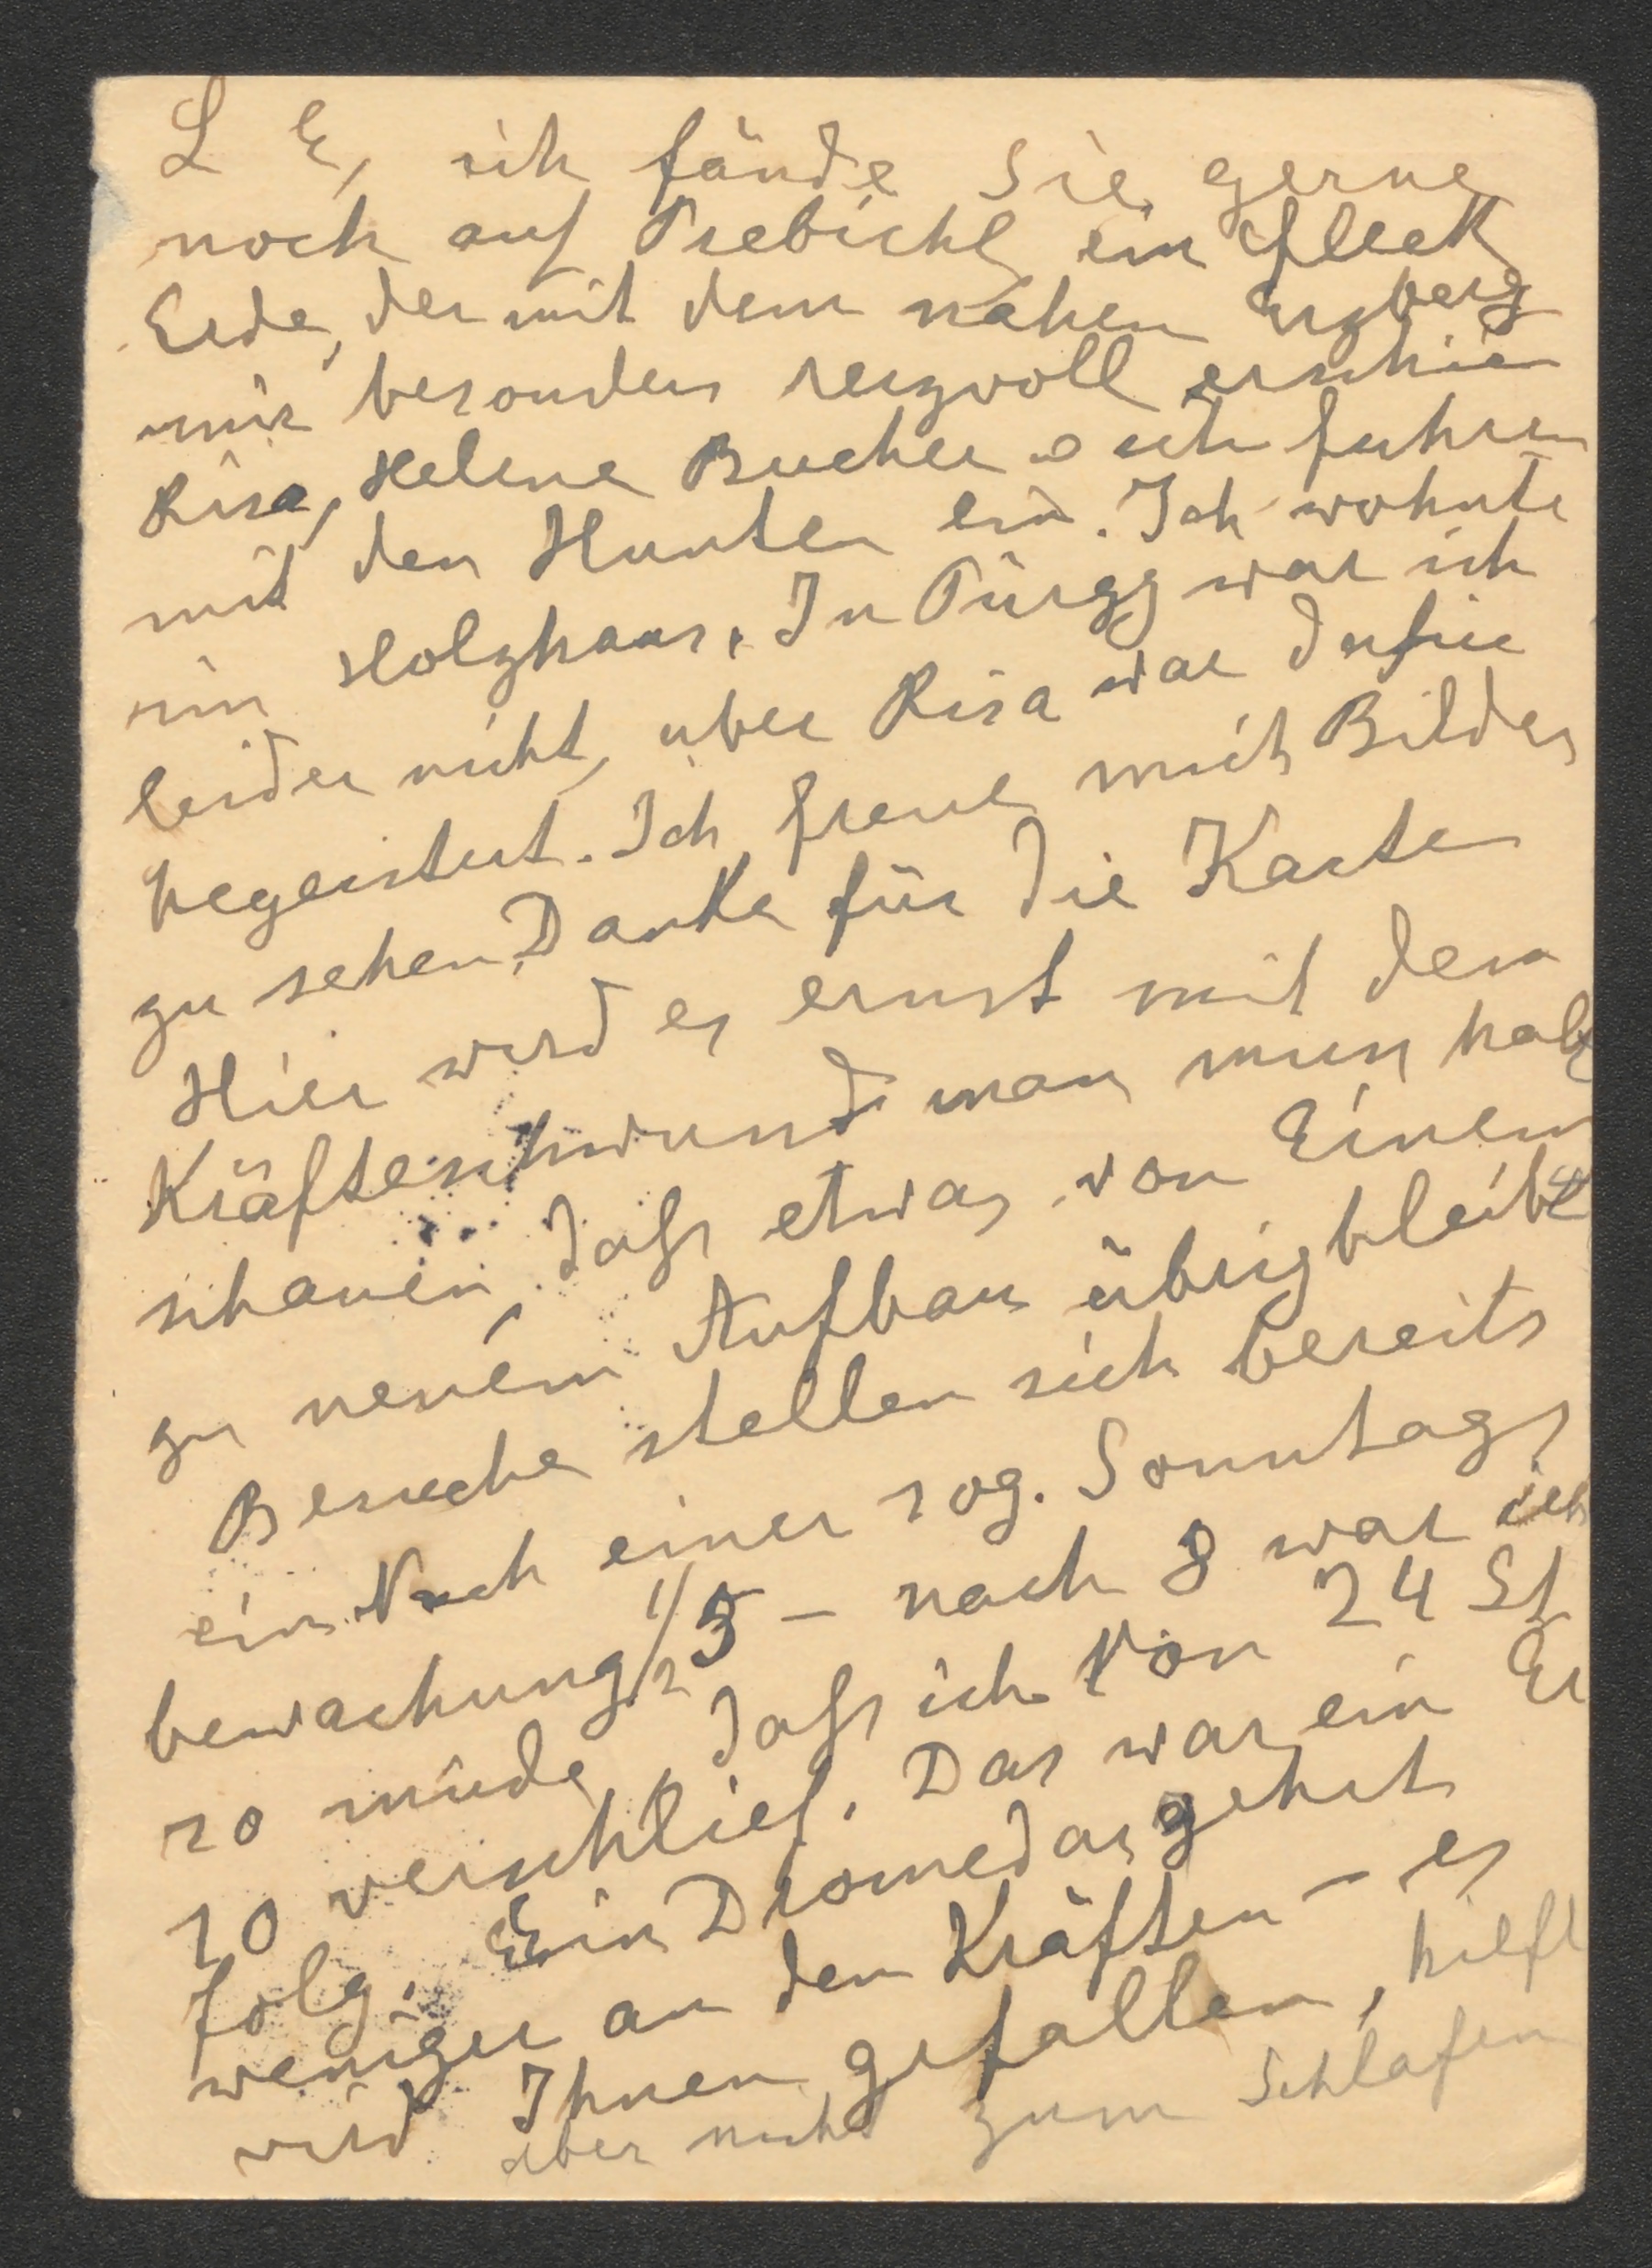 L E, ich fände Sie gerne
noch auf Prebichl, ein Fleck
Erde, der mit dem nahen Erzberg
mir besonders reizvoll erschien
Risa, Helene Bucher u ich fuhren
mit den Hunten ein. Ich wohnte
im Holzhaus. In Pürgg war ich
leider nicht, aber Risa war dafür
begeistert. Ich freue mich Bilder
zu sehen. Danke für die Karte
Hier wird es ernst mit dem
Kräfteschwund man muss halt
schauen, dass etwas von Einem
zu neuem Aufbau übrigbleibt
Besuche stellen sich bereits
ein. Nach einer sog. Sonntags
bewachung 1/2 5 – nach 8 war ich
so müde, dass ich von 24 St
10 verschlief. Das war ein Er
folg. Ein Dromedar zehrt
weniger an den Kräften – es
wird Ihnen gefallen, hilft
aber nicht zum Schlafen